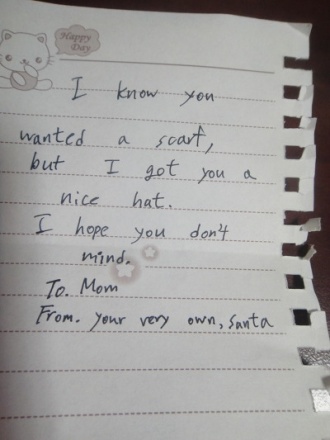 Happy
Day
I know you
wanted a scarf,
but I got you a
nice hat.
I hope you don't
mind.
To. Mom
From. your very own, Santa